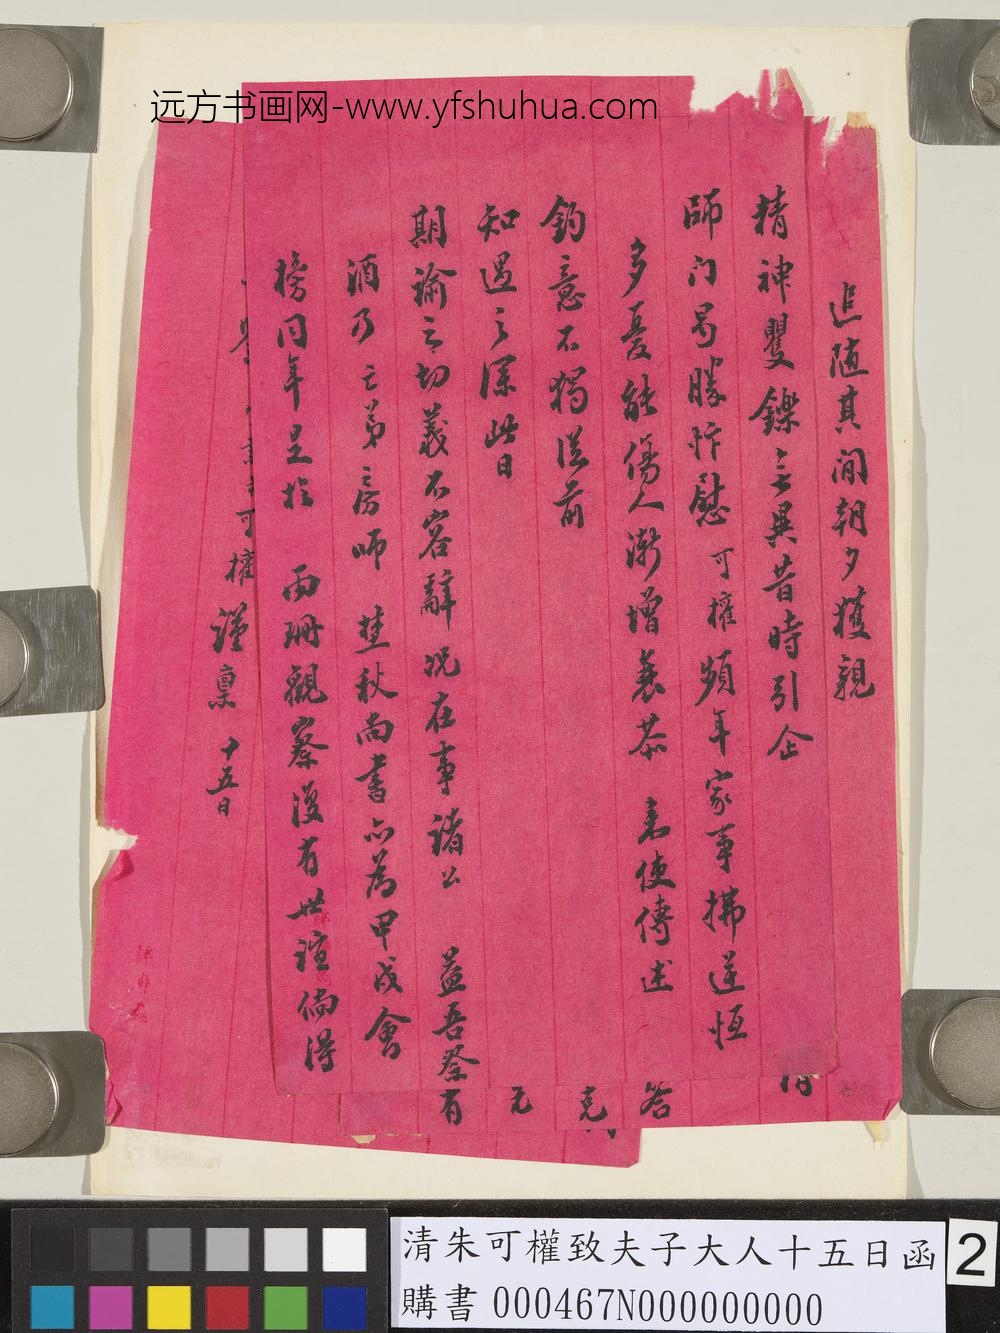 远方书画网-www.yfshuhua.com
追随其間朝夕獲親
精神矍鑠無異昔時引企
師门曷勝忭慰可權頻年家事拂逆恒
多憂能傷人漸增衰茶 來使傳述
鈞意不獨從前
知遇之深此日
期諭之切義不容辭况在事諸公 益吾祭有
酒乃亡弟房師 埜秋尚書亦為甲戌會
榜同年至於 雨珊觀察復有世誼倘得
可權
謹稟 十五日
答
克
元
清朱可權致夫子大人十五日函
購書 000467N000000000
2